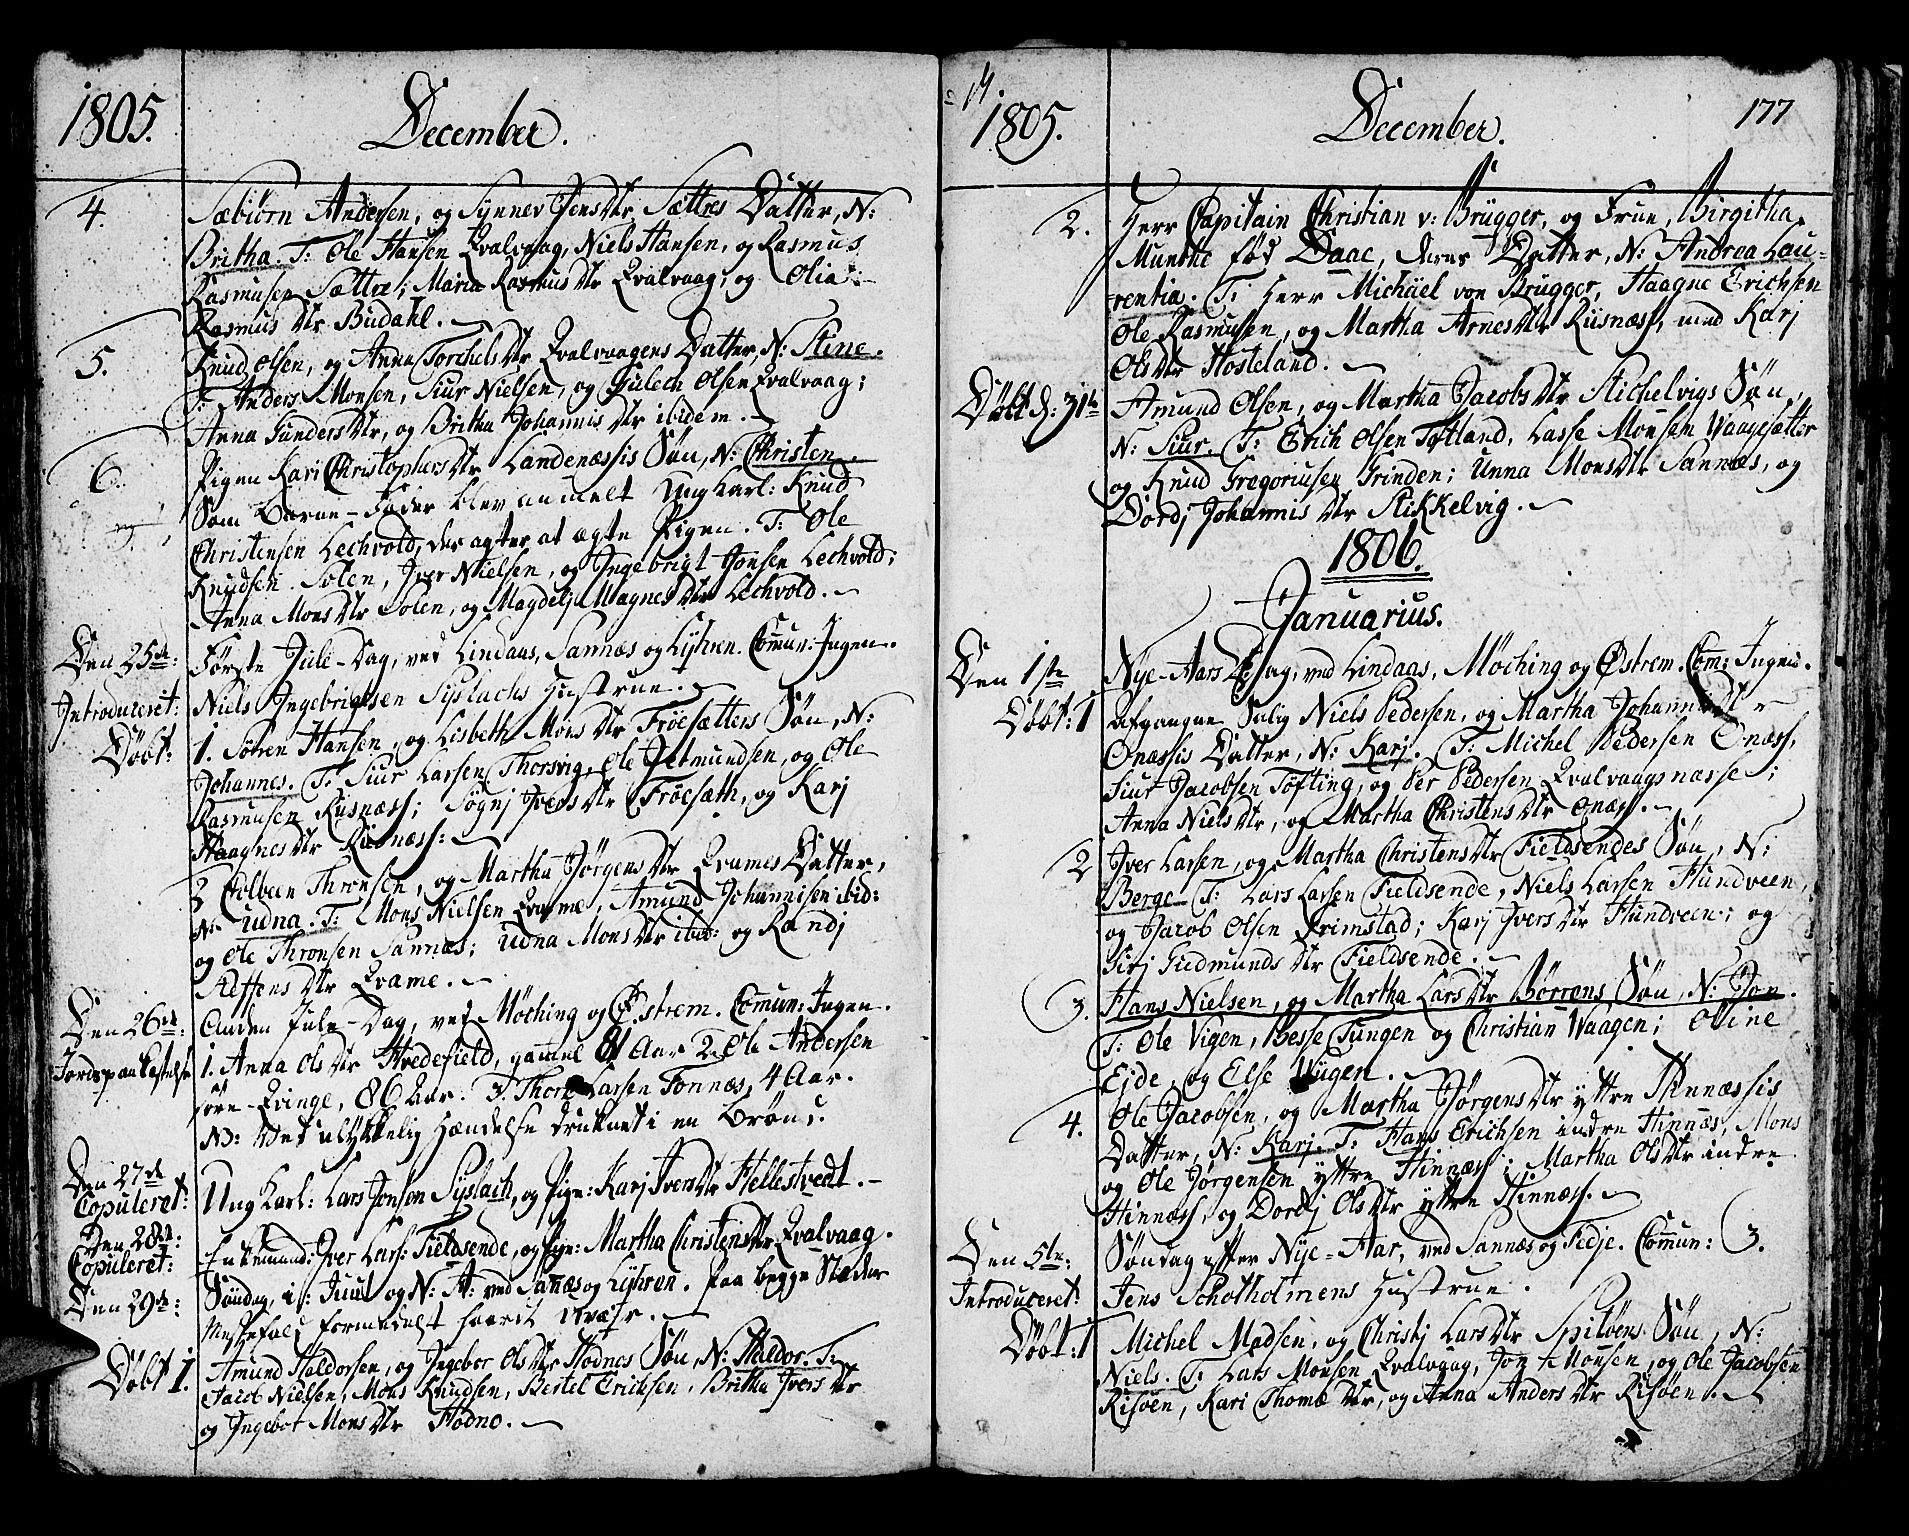 1805.
December.
4. Sæbiörn Andersen, og Synnev Jens Dtr Sættres Datter, N:
Britha. T: Ole Hansen Qvalvaag, Niels Hansen, og Rasmus
Rasmusen Sættre; Maria Rasmus Dtr Qvalvaag, og Olia
Rasmus Dtr Budahl.
5. Knud Olsen, og Anna Torchels Dtr Qvalvaagens Datter, N: Stine.
T: Anders Monsen, Siur Nielsen, og Gulech Olsen Qvalvaag;
Anna Gunders Dtr, og Britha Johannis Dtr ibidem.
6. Pigen Kari Christophers Dtr Landenæssis Søn, N: Christen.
Som Barne-Fader blev anmelt Ung karl: Knud
Christensen Lechvold, der agter at ægte Pigen. T: Ole
Knudsen Solen, Jver Nielsen, og Jngebrigt Jonsen Lechvold;
Anna Mons Dtr Solen, og Magdelj Magnes Dtr Lechvold.
Den 25de: Første Jule-Dag, ved Lindaas, Sannæs og Lyhren. Comun: Jngen.
Introduceret: Niels Jngebrigtsen Syslachs Hustrue.
Døbt: 1. Søfren Hansen, og Lisbeth Mons Dtr Frøesætters Søn, N:
Johannes. T: Siur Larsen Thorsvig, Ole Jetmundsen, og Ole
Rasmusen Risnæss; Søgnj Jvers Dtr Frøesæth, og Karj
Haagnes Dtr Risnæss:
2 Colbeen Thronsen, og Martha Jørgens Dtr Qvames Datter,
N: Udna. T: Mons Nielsen Qvame, Amund Johannisen ibid:
og Ole Thronsen Sannæs; Udna Mons Dtr ibid: og Randj
Steffens Dtr Qvame.
Den 26de: Anden Jule-Dag, ved Møching og Østrem. Comun: Jngen.
Jordspaakastelse 1. Anna Ols Dtr Hredefield, gamel 81 Aar 2. Ole Andersen
Qvinge, 86 Aar. 3. Larsen Fonnæs, 4 Aar.
NB: Ved ulykkelig Hændelse druknet i en Brønd.
Den 27de
Copuleret: Ung karl: Lars Jonsen Syslach, og Pige: Karj Jvers Dtr Hellestvedt.
Den 28de:
Copuleret: Enkemand: Jver Lars: Fieldsende, og Pige: Martha Christens Dtr Qvalvaag.
Den 29de: Søndag, i: Juul og N: A: ved Sannæs og Lyhren. Paa begge Stæder
Messefald formedelst haardt Weir.
Døbt 1. Amund Haldorsen, og Jngebor Ols Dtr Hodnes Søn, N: Haldor. T:
Jacob Nielsen, Mons Knudsen, Bertel Ericksen, Britha Jvers Dtr
og Jngebor Mons Dtr Hodne.
1805.
December.
177
2. Herr Capitain Christian v: Brügger, og Frue, Birgitha
Munthe fød Daae, deres Datter, N: Andrea Lau-
rentia. T: Herr Michäel von Brügger, Haagne Erichsen
Ole Rasmusen, og Martha Arnes Dtr Risnæss, med Karj
Ols Dtr Hosteland.
Døbt d: 31te Amund Olsen, og Martha Jacobs Dtr Stichelvigs Søn,
N: Siur. T: Erich Olsen Toftland, Lasse Monsen Vaagesætter
og Knud Gregoriusen Grinden; Unna Mons Dtr Sannæs, og
Dordj Johannis Dtr Stikkelvig.
1806.
Januarius.
Den 1ste Nye-Aars Dag, ved Lindaas, Møching og Østrem. Com: Jngen.
Døbt: 1 Afgangne Salig Niels Pedersen, og Martha Johannis Dtr
Onæssis Datter, N: Karj. T: Michel Pedersen Onæss,
Siur Jacobsen Tøfting, og Per Pedersen Qvalvaagsnæsse;
Anna Niels Dtr, og Martha Christens Dtr Onæss.
2 Jver Larsen, og Martha Christens Dtr Fieldsendes Søn, N:
Berge T: Lars Larsen Fieldsende, Niels Larsen Hundveen,
og Jacob Olsen Grimstad; Karj Jvers Dtr Hundveen; og
Sirj Gudmunds Dtr Fieldsende.
3. Hans Nielsen, og Martha Lars Dtr Børrøns Søn, N: Jon.
T: Ole Vigen, Besse Tungen og Christian Vaagen; Oline
Ejde, og Else Vügen.
4. Ole Jacobsen, og Martha Jørgens Dtr yttre Hinnæssis
Datter, N: Karj. T: Hans Erichsen indre Hinnæs, Mons
og Ole Jørgensen yttre Hinnæss; Martha Ols Dtr indre
Hinnæss, og Dordj Ols Dtr yttre Hinnæss.
Den 5te: Søndag efter Nye-Aar, ved Sannæs og Fedje. Comun: 3.
Introduceret: Jens Schotholmens Hustrue.
Døbt: 1 Michel Madsen, og Christj Lars Dtr Spilöens Søn, N:
Niels. T: Lars Monsen Qvalvaag, Jon Monsen, og Ole Jacobsen
Risøen, Kari Thomæ Dtr, og Anna Anders Dtr Risøen.